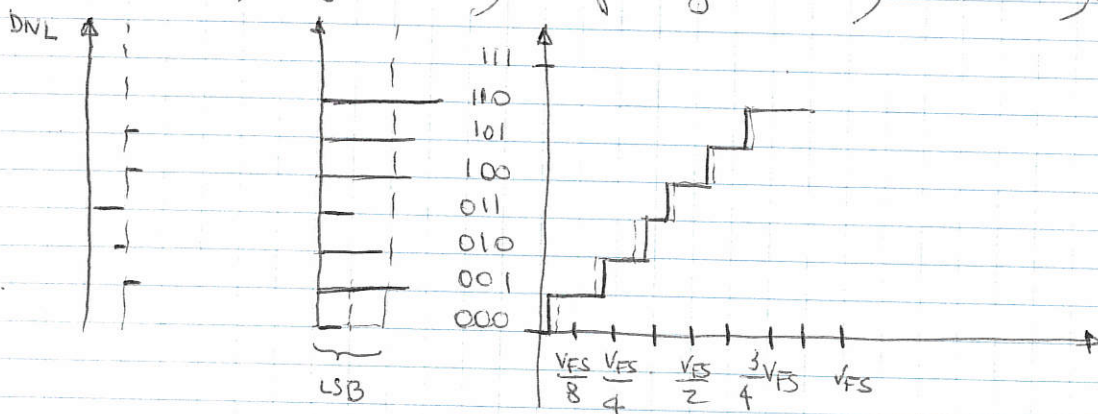 DNL
111
110
101
100
011
010
001
000
LSB
V_FS/8 V_FS/4 V_FS/2 3/4 V_FS V_FS